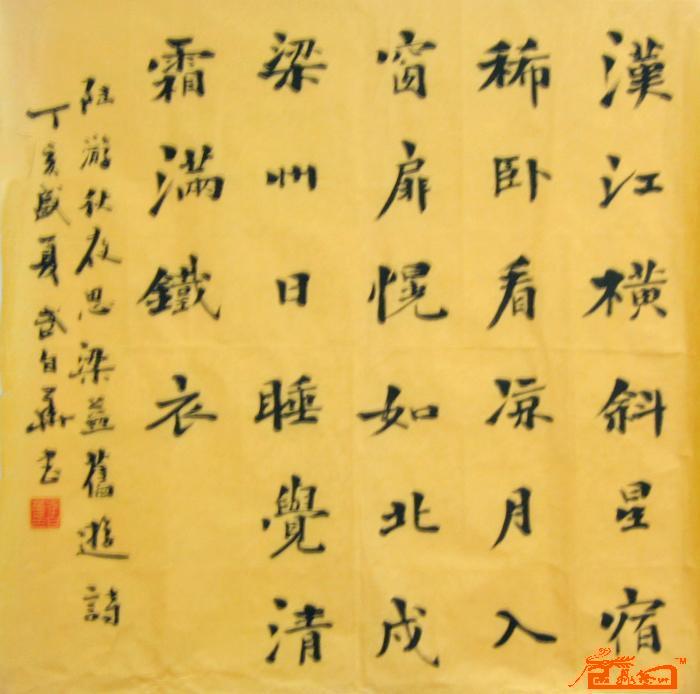 漢江橫斜星宿
稀卧看涼月入
窗扉幌如北戍
梁州日睡覺清
霜滿鐵衣
陸游秋夜思梁益舊遊詩
丁亥盛夏